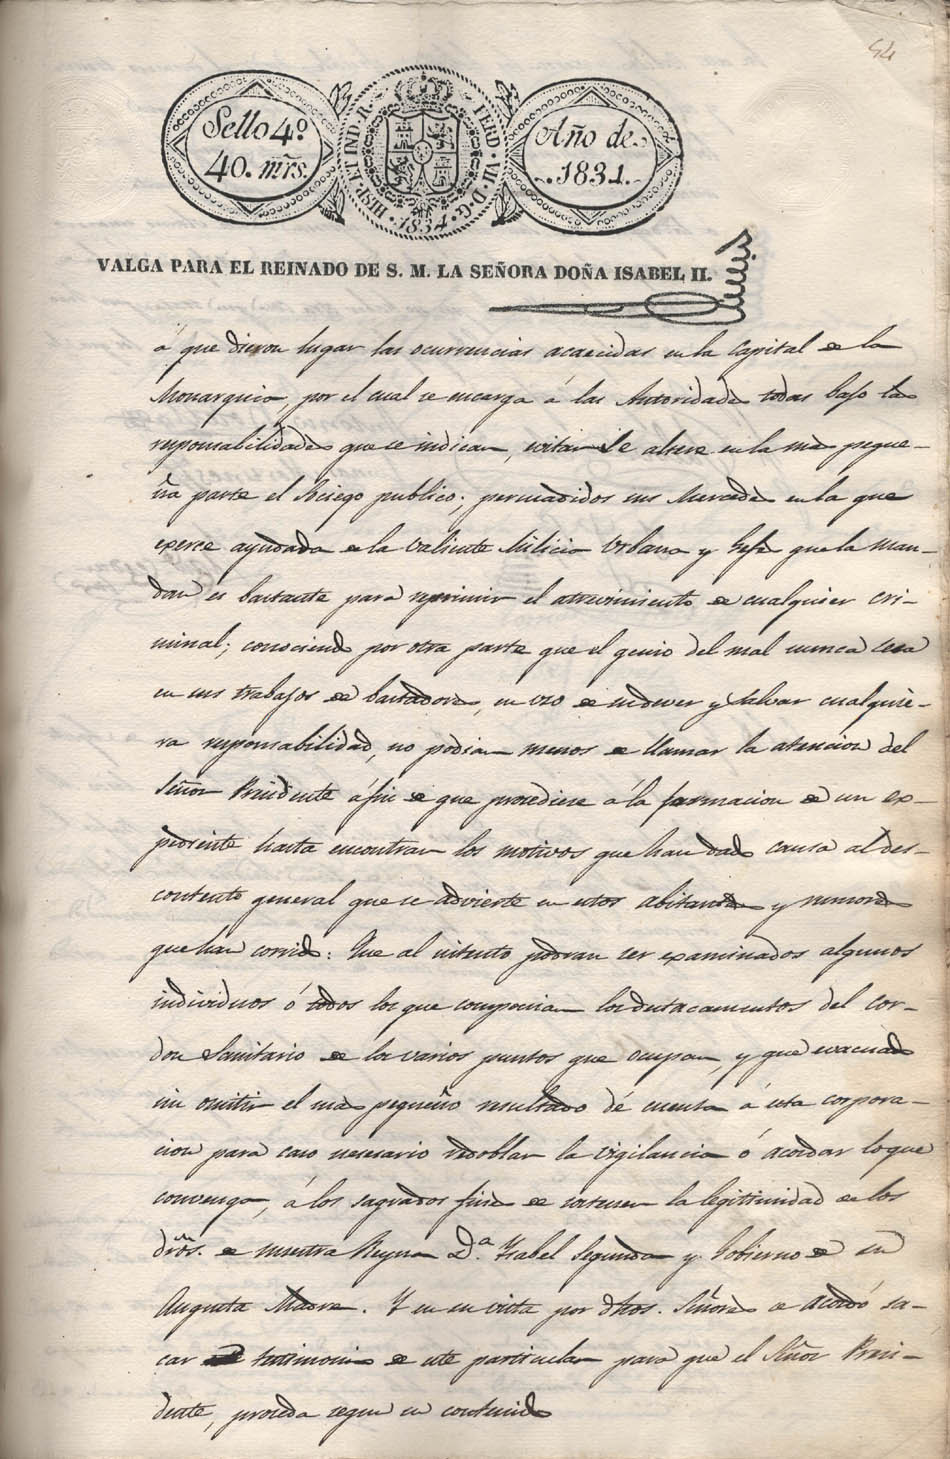 54
Sello 4º
40. mrs.
HISP. ET IND. R. FERD. VII. D. G. 1834.
Año de
1834.
VALGA PARA EL REINADO DE S. M. LA SEÑORA DOÑA ISABEL II.
á que dieron lugar las ocurrencias acaecidas en la Capital de la
Monarquia, por el cual se encarga á las Autoridades todas bajo las
responsabilidades que se indican, evitar Se altere en la mas peque-
ña parte el Sosiego publico; persuadidos sus Mercedes en la que
exerce ayudada de la valiente Milicia Urbana y Gefes que la man-
dan es bastante para reprimir el atrevimiento de cualquier cri-
minal; conociendo por otra parte que el genio del mal nunca cesa
en sus trabajos de bastadores, en uso de su dever y salvar cualquie-
ra responsabilidad, no podian menos de llamar la atencion del
Señor Presidente á fin de que procediese á la formacion de un ex-
pediente hasta encontrar los motivos que han dado causa al des-
contento general que se advierte en estos abitantes y rumores
que han corrido: Que al intento podran ser examinados algunos
individuos ó todos los que componian los destacamentos del cor-
don Sanitario de los varios puntos que ocupan, y que evacuado
sin omitir el mas pequeño resultado dé cuenta á esta corpora-
cion para caso necesario redoblar la vigilancia ó acordar lo que
convenga, á los sagrados fines de sostener la legitimidad de los
dros. de nuestra Reyna D.ª Ysabel Segunda y Gobierno de su
Augusta Madre. Y en su vista por dhos. Señores se acordó sa-
car testimonio de este particular para que el Señor Presi-
dente, proceda segun su contenido